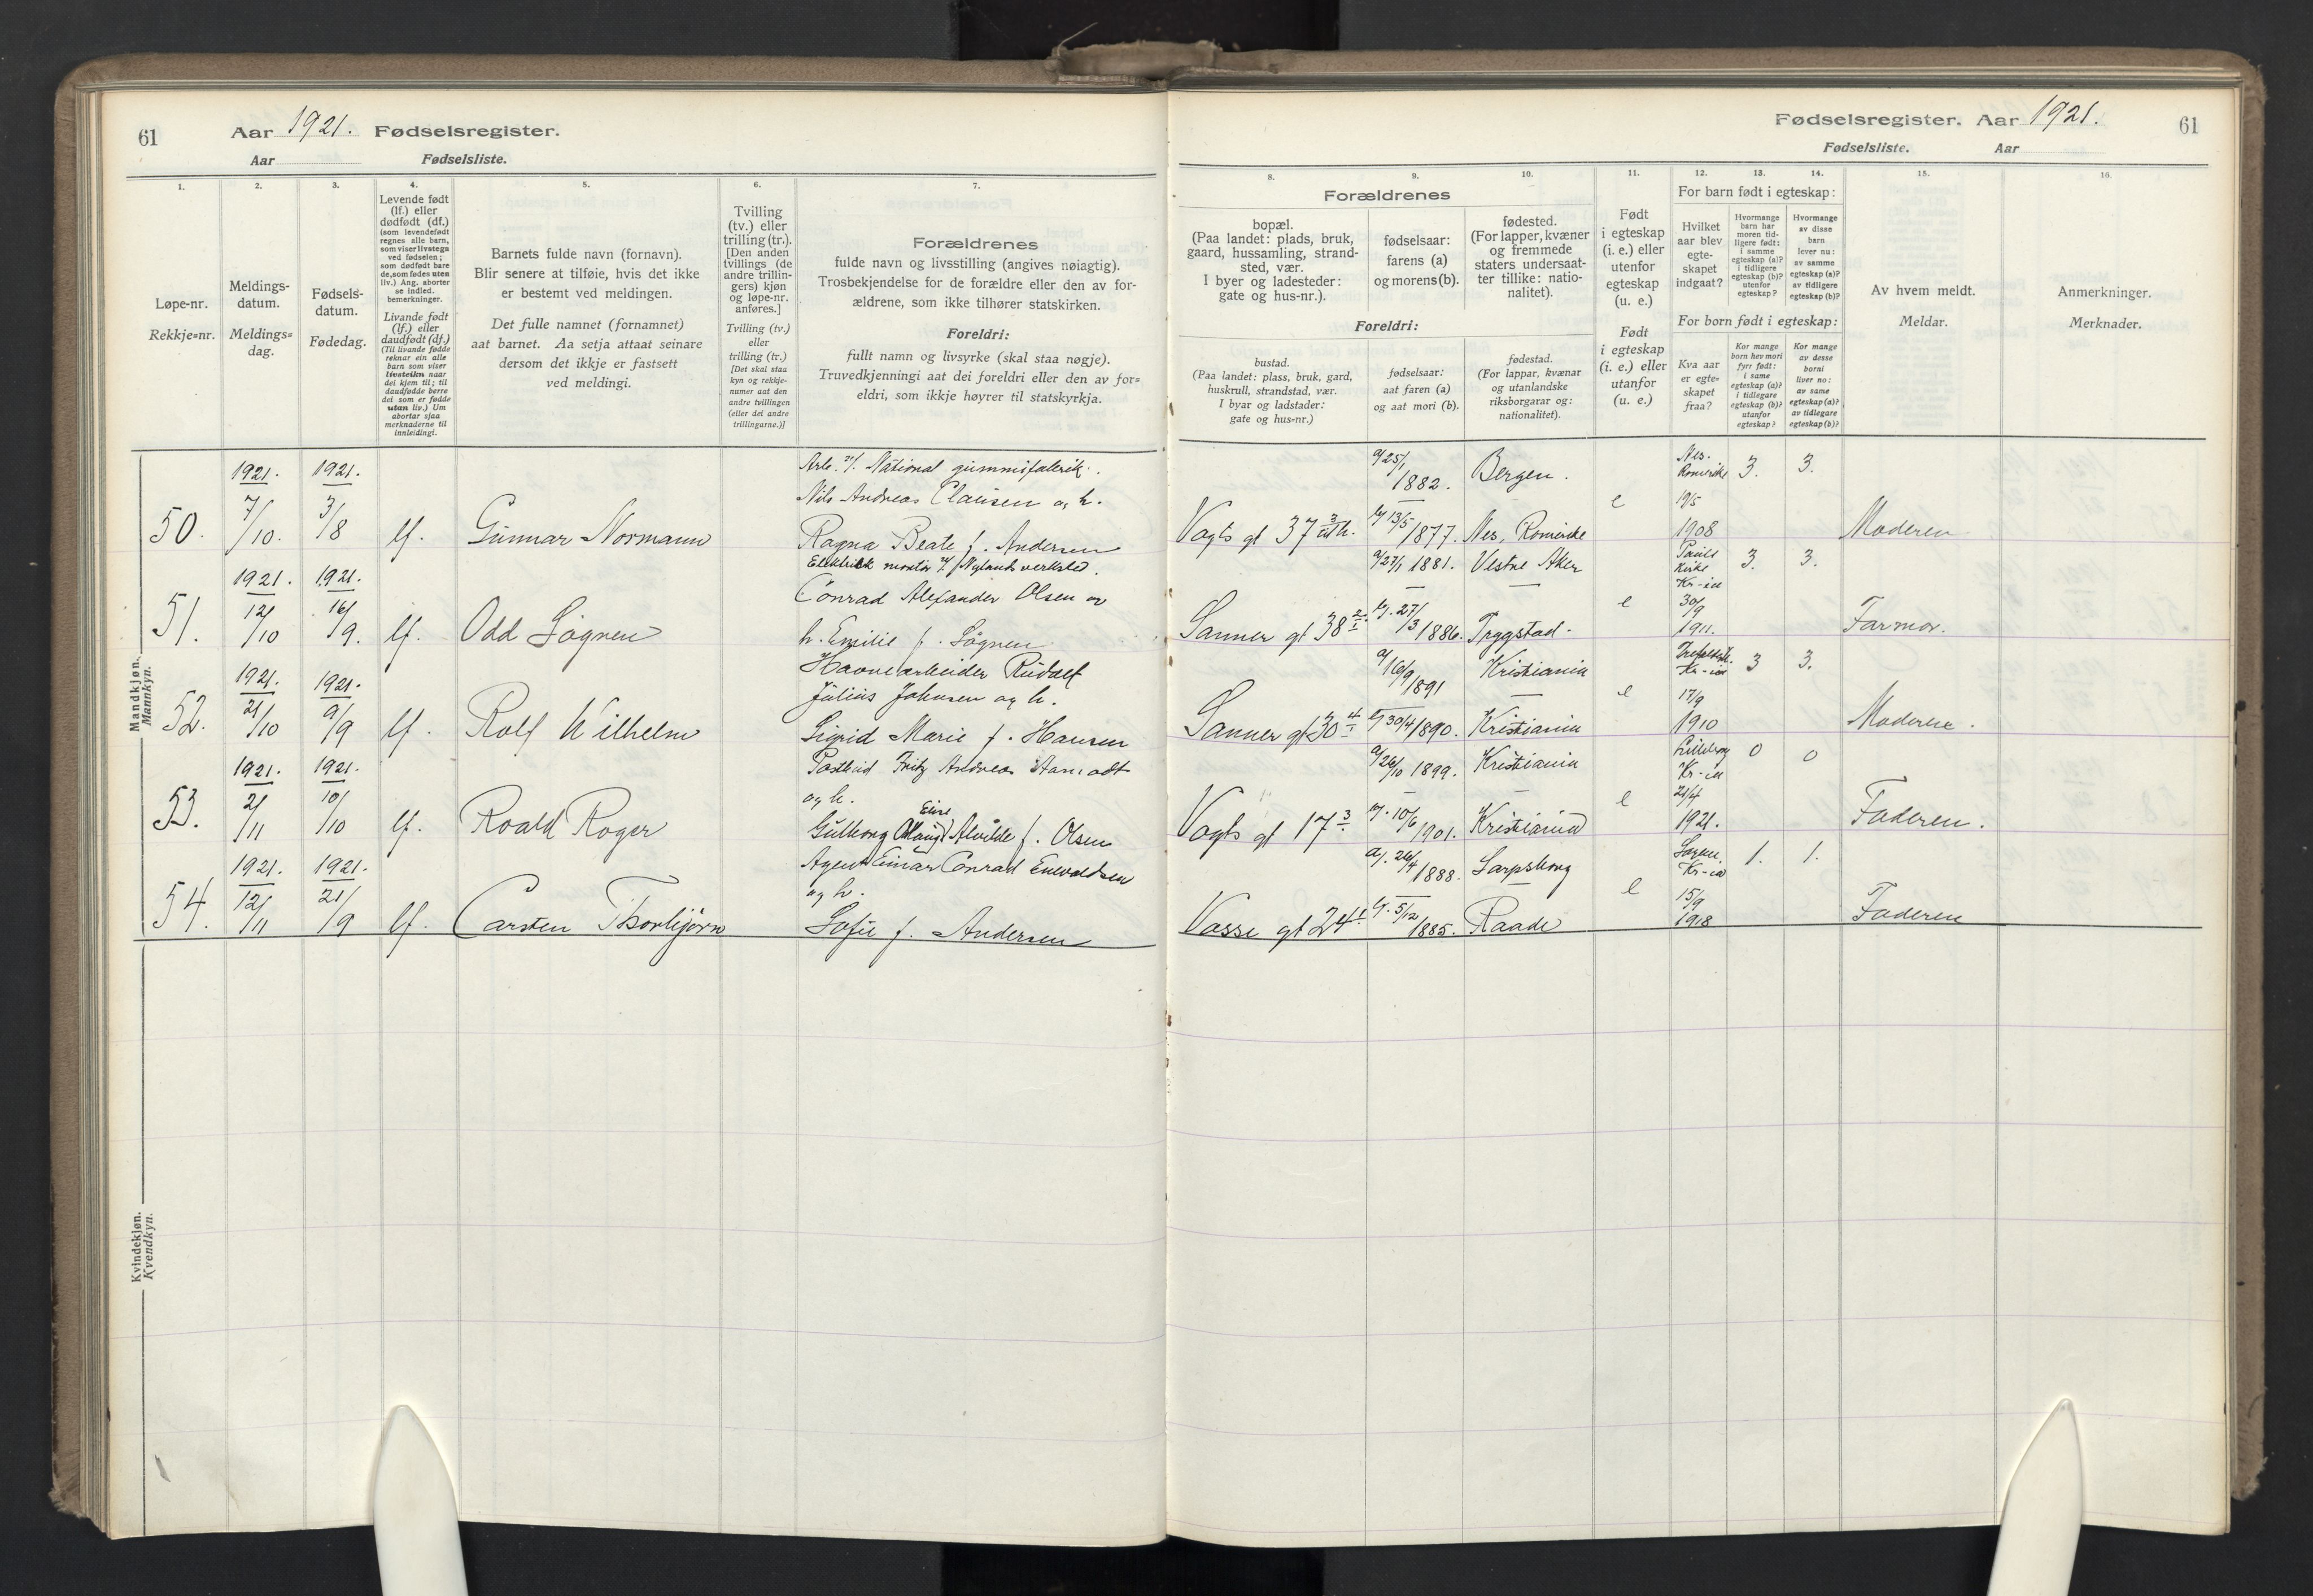 61
Aar 1921. Fødselsregister.
Aar Fødselsliste.
1.
Løpe-nr.
Rekkje=nr.
2.
Meldings-
datum.
Meldings=
dag.
3.
Fødsels-
datum.
Fødedag.
4.
Levende født
(lf.) eller
dødfødt (df.)
(som levendefødt
regnes alle barn,
som viser livstegn
ved fødselen;
som dødfødt bare
de, som fødes uten
liv.) Ang. aborter
se indled.
bemerkninger.
Livande født
(lf.) eller
daudfødt (df.)
(Til livande fødde
reknar ein alle
barn som viser
livsteikn naar
dei kjem til; til
daudfødde berre
dei som er fødde
utan liv.) Um
abortar sjaa
merknaderne til
innleidingi.
5.
Barnets fulde navn (fornavn).
Blir senere at tilføie, hvis det ikke
er bestemt ved meldingen.
Det fulle namnet (fornamnet)
aat barnet. Aa setja attaat seinare
dersom det ikkje er fastsett
ved meldingi.
6.
Tvilling
(tv.) eller
trilling (tr.).
[Den anden
tvillings (de
andre trillin-
gers) kjøn
og løpe-nr.
anføres.]
Tvilling (tv.)
eller
trilling (tr.)
[Det skal staa
kyn og rekkje-
numer aat den
andre tvillingen
(eller dei andre
trillingarne.)]
7.
Forældrenes
fulde navn og livsstilling (angives nøiagtig).
Trosbekjendelse for de forældre eller den av for-
ældrene, som ikke tilhører statskirken.
Foreldri:
fullt namn og livsyrke (skal staa nøgje).
Truvedkjenningi aat dei foreldri eller den av for=
eldri, som ikkje høyrer til statskyrkja.
Mandkjøn.
Mannkyn.
50.
1921.
7/10.
1921.
3/8
lf.
Gunnar Normann
Arb. v/. National gummifabrik.
Nils Andreas Clausen og h.
Ragna Beate f. Andersen
51.
1921.
12/10
1921.
16/9.
lf.
Odd Søgnen
Elektrisk montør v/. Nylands verksted.
Conrad Alexander Olsen og
h. Emilie f. Søgnen
52.
1921.
21/10
1921.
9/9
lf.
Rolf Wilhelm
Havnearbeider Rudolf
Julius Johnsen og h.
Sigrid Marie f. Hansen
53.
1921.
2/11
1921.
10/10
lf.
Roald Roger
Postbud Fritz Andreas
og h.
Gulborg Alvilde f. Olsen
54.
1921.
12/11
1921.
21/9
lf.
Carsten Thorbjørn
Agent Einar Conrad Enevoldsen
og h.
Sofie f. Andersen
Kvindekjøn.
Kvendkyn.
Fødselsregister. Aar 1921.
61
Fødselsliste. Aar
8.
Forældrenes
bopæl.
(Paa landet: plads, bruk,
gaard, hussamling, strand-
sted, vær.
I byer og ladesteder:
gate og hus-nr.).
Foreldri:
bustad.
(Paa landet: plass, bruk, gard,
huskrull, strandstad, vær.
I byar og ladstader:
gate og hus=nr.)
9.
fødselsaar:
farens (a)
og morens (b).
fødselsaar:
aat faren (a)
og aat mori (b).
10.
fødested.
(For lapper, kvæner
og fremmede
staters undersaat-
ter tillike: natio-
nalitet).
fødestad.
(For lappar, kvænar
og utanlandske
riksborgarar og:
nationalitet).
11.
Født
i egteskap
(i. e.) eller
utenfor
egteskap
(u. e.)
Født
i egteskap
(i. e.) eller
utanfor
(u. e.)
12.
For barn født i egteskap:
Hvilket
aar blev
egte-
skapet
indgaat?
For born født i egteskap:
Kva aar
er egte-
skapet
fraa?
13.
Hvormange
barn har
moren tid-
ligere født:
i samme
egteskap (a)?
i tidligere
egteskap (b)?
utenfor
egteskap?
Kor mange
born hev mori
fyrr født:
i same
egteskap (a)?
i tidlegare
egteskap (b)?
utanfor
egteskap?
14.
Hvormange
av disse
barn
lever nu:
av samme
egteskap (a)?
av tidligere
egteskap (b)?
Kor mange
av desse
borni
liver no:
av same
egteskap (a)?
av tidlegare
egteskap (b)?
15.
Av hvem meldt.
Meldar.
16.
Anmerkninger.
Merknader.
Vogts gt 37 3/
a/25/1 1882.
b/13/5 1877.
Bergen.
Nes, Romerike
e
Nes.
Romerike
19/5
1908
3.
3.
Moderen
Sanner gt 38 2/1.
a/27/1 1881.
b. 27/3 1886.
Vestre Aker
Trygstad.
e
Pauls
kirke
Kr-ia
30/9
1911.
3.
3.
Farmor.
Sanner gt 30 4/1
a/16/9 1891
b/30/4 1890.
Kristiania
Kristiania
e
Kr-ia
17/9
1910
3
3.
Moderen.
Vogts gt 17 3
a/26/10 1899.
b. 10/6 1901.
Kristiania
Kristiania
e
Lilleborg
Kr-ia
21/4
1921.
0
0
Faderen.
Vosse gt 24 1
a. 26/4 1888.
b. 5/12 1885.
Sarpsborg
Raade
e
Sagene.
Kr-ia
15/9
1918
1.
1.
Faderen